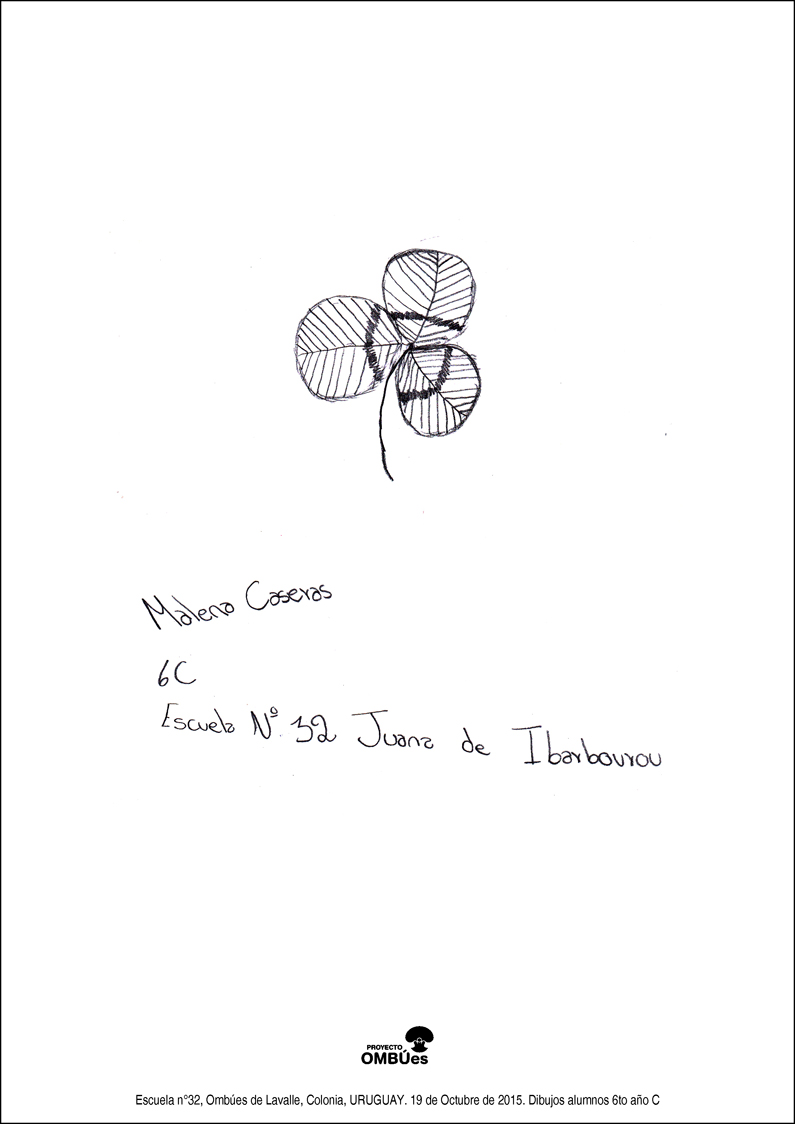 Malena Caseras
6C
Escuela Nº 32 Juana de Ibarbourou
PROYECTO
OMBÚes
Escuela n°32, Ombúes de Lavalle, Colonia, URUGUAY. 19 de Octubre de 2015. Dibujos alumnos 6to año C